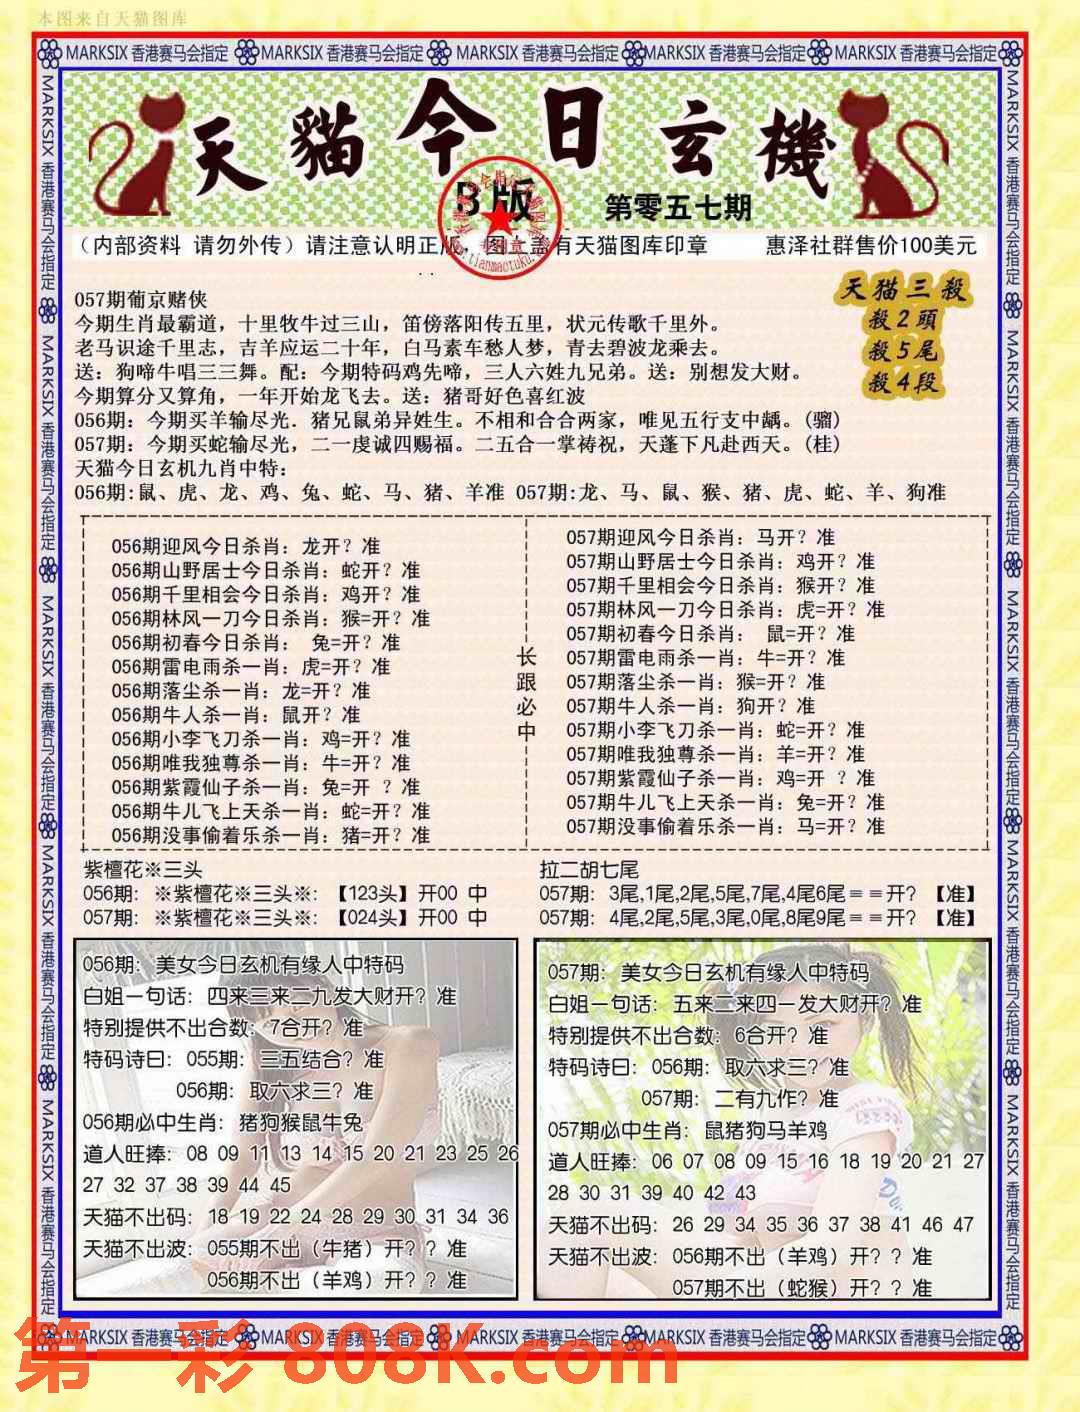 本图来自天猫图库
MARKSIX 香港赛马会指定 MARKSIX 香港赛马会指定 MARKSIX 香港赛马会指定 MARKSIX 香港赛马会指定 MARKSIX 香港赛马会指定
天貓今日玄機
B版
第零五七期
（内部资料 请勿外传）请注意认明正版，图上盖有天猫图库印章 惠泽社群售价100美元
天猫三殺
殺2頭
殺5尾
殺4段
057期葡京赌侠
今期生肖最霸道，十里牧牛过三山，笛傍落阳传五里，状元传歌千里外。
老马识途千里志，吉羊应运二十年，白马素车愁人梦，青去碧波龙乘去。
送：狗啼牛唱三三舞。配：今期特码鸡先啼，三人六姓九兄弟。送：别想发大财。
今期算分又算角，一年开始龙飞去。送：猪哥好色喜红波
056期：今期买羊输尽光．猪兄鼠弟异姓生。不相和合合两家，唯见五行支中龋。(骝)
057期：今期买蛇输尽光，二一虔诚四赐福。二五合一掌祷祝，天蓬下凡赴西天。(桂)
天猫今日玄机九肖中特：
056期:鼠、虎、龙、鸡、兔、蛇、马、猪、羊准 057期:龙、马、鼠、猴、猪、虎、蛇、羊、狗准
056期迎风今日杀肖：龙开？准
056期山野居士今日杀肖：蛇开？准
056期千里相会今日杀肖：鸡开？准
056期林风一刀今日杀肖：猴=开？准
056期初春今日杀肖： 兔=开？准
056期雷电雨杀一肖：虎=开？准
056期落尘杀一肖：龙=开？准
056期牛人杀一肖：鼠开？准
056期小李飞刀杀一肖：鸡=开？准
056期唯我独尊杀一肖：牛=开？准
056期紫霞仙子杀一肖：兔=开 ？准
056期牛儿飞上天杀一肖：蛇=开？准
056期没事偷着乐杀一肖：猪=开？准
长跟必中
057期迎风今日杀肖：马开？准
057期山野居士今日杀肖：鸡开？准
057期千里相会今日杀肖：猴开？准
057期林风一刀今日杀肖：虎=开？准
057期初春今日杀肖： 鼠=开？准
057期雷电雨杀一肖：牛=开？准
057期落尘杀一肖：猴=开？准
057期牛人杀一肖：狗开？准
057期小李飞刀杀一肖：蛇=开？准
057期唯我独尊杀一肖：羊=开？准
057期紫霞仙子杀一肖：鸡=开 ？准
057期牛儿飞上天杀一肖：兔=开？准
057期没事偷着乐杀一肖：马=开？准
紫檀花※三头
056期：※紫檀花※三头※:【123头】开00 中
057期：※紫檀花※三头※:【024头】开00 中
拉二胡七尾
057期：3尾,1尾,2尾,5尾,7尾,4尾6尾＝＝开？【准】
057期：4尾,2尾,5尾,3尾,0尾,8尾9尾＝＝开？【准】
056期：美女今日玄机有缘人中特码
白姐一句话：四来三来二九发大财开？准
特别提供不出合数：7合开？准
特码诗曰：055期：三五结合？准
056期：取六求三？准
056期必中生肖：猪狗猴鼠牛兔
道人旺捧：08 09 11 13 14 15 20 21 23 25 26
27 32 37 38 39 44 45
天猫不出码：18 19 22 24 28 29 30 31 34 36
天猫不出波：055期不出（牛猪）开？？准
056期不出（羊鸡）开？？准
057期：美女今日玄机有缘人中特码
白姐一句话：五来二来四一发大财开？准
特别提供不出合数：6合开？准
特码诗曰：056期：取六求三？准
057期：二有九作？准
057期必中生肖：鼠猪狗马羊鸡
道人旺捧：06 07 08 09 15 16 18 19 20 21 27
28 30 31 39 40 42 43
天猫不出码：26 29 34 35 36 37 38 41 46 47
天猫不出波：056期不出（羊鸡）开？？准
057期不出（蛇猴）开？？准
MARKSIX 香港赛马会指定 MARKSIX 香港赛马会指定 MARKSIX 香港赛马会指定 MARKSIX 香港赛马会指定 MARKSIX 香港赛马会指定
第一彩 808K.com